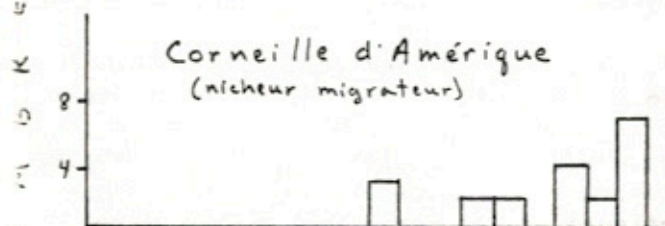 Corneille d'Amérique
(nicheur migrateur)
8
4